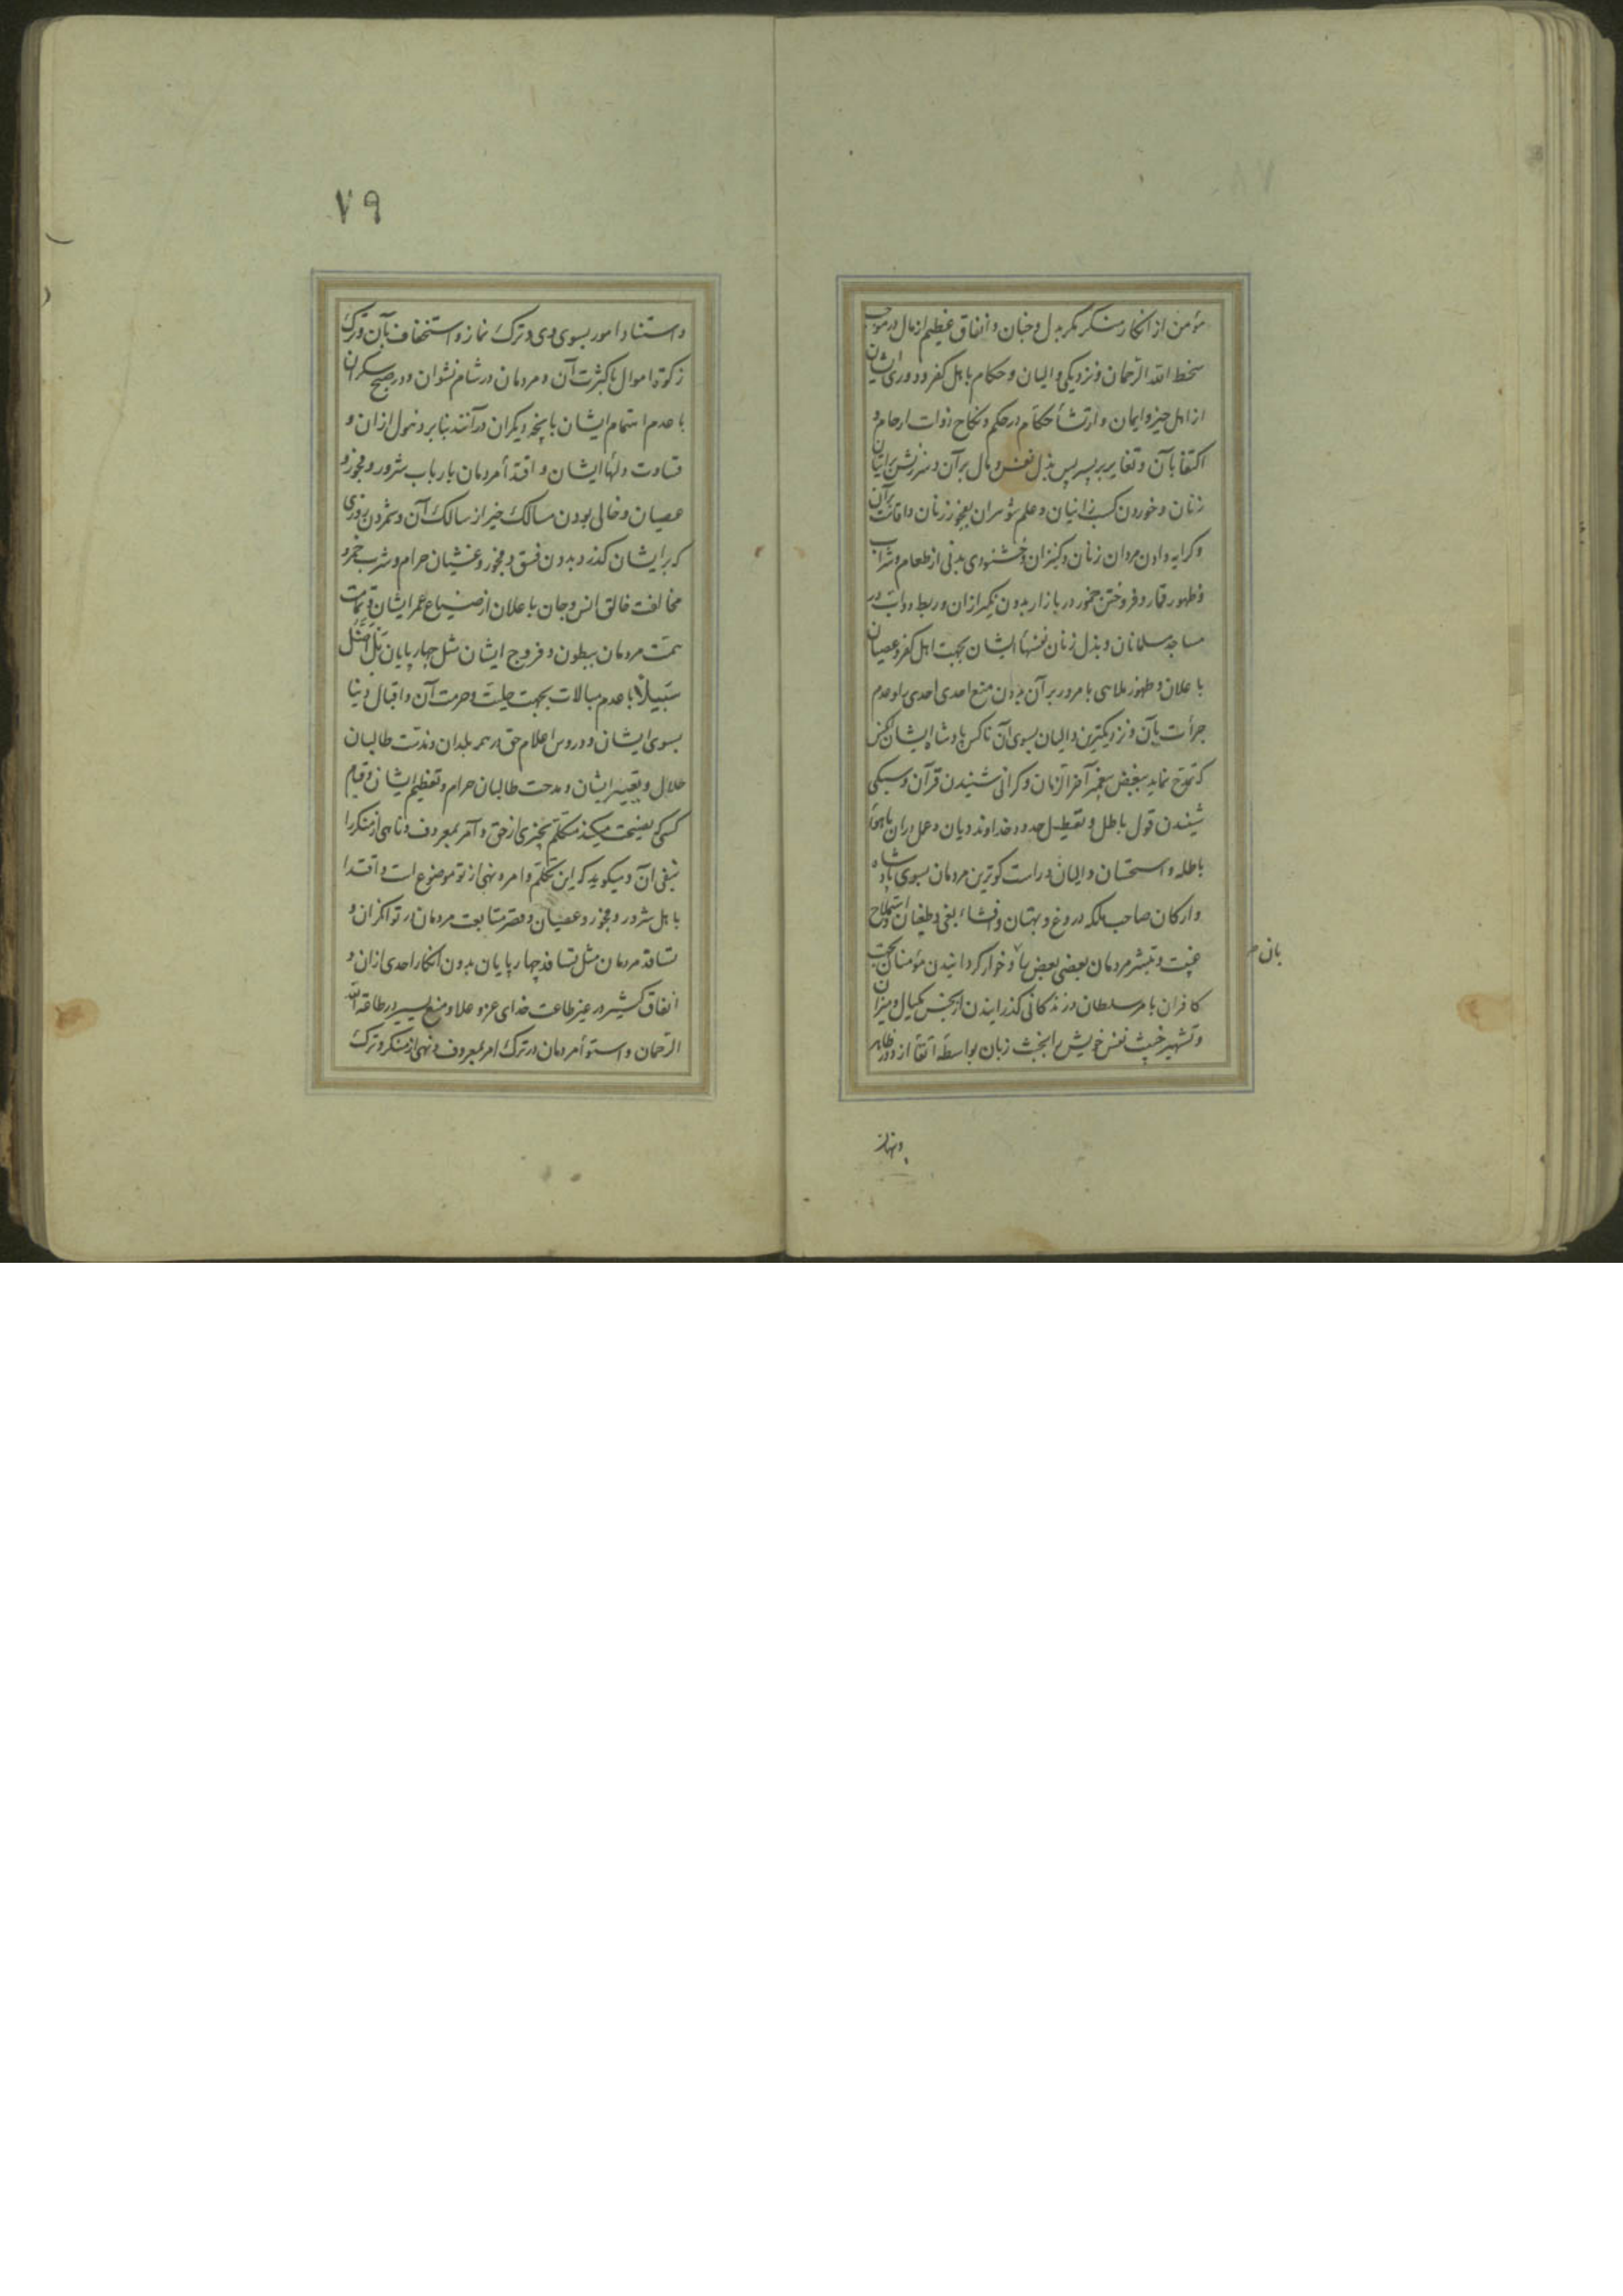 مؤمن از انکار منکر مکر بدل و جنان و انفاق عظیم از مال در موجب
سخط الله الرحمان و نزدیکی والیان و حکام باهل کفر و دوری ایشان
از اهل خیر و ایمان و ارتشأ حکام در حکم و نکاح ذوات ارحام و
اکتفا بآن و تغایر بر پسر پس بذل نفس و مال بر آن و سرزنش بر اتیان
زنان و خوردن کسب زانیان و علم شوهران بفجور زنان و اقامت بر آن
و کرایه دادن مردان زنان و کنیزان و خشنودی بدنی از طعام و شراب
و ظهور قمار و فروختن خمور در بازار بدون نکیر ازان و ربط دواب در
مساجد مسلمانان و بذل زنان نفسهأ ایشان بجهت اهل کفر و عصیان
باعلان و ظهور ملاهی با مرور بر آن بدون منع احدی احدی را و عدم
جرأت بآن و نزدیکترین والیان بسوی آن ناکس پادشاه ایشان کسی
که تمدح نماید ببغض پیغمبر آخر الزمان و کرانی شنیدن قرآن و سبکی
شنیدن قول باطل و تعطیل حدود خداوند دیان و عمل دران باهوأ
باطله و استحسان والیان و راست کوترین مردمان بسوی پادشاه
و ارکان صاحب ملکه دروغ و بهتان و افشاء بغی و طغیان و استملاح
غیبت و تبشر مردمان بعضی بعض را و خوار کردانیدن مؤمنان بجهت
کافران بامر سلطان و زندکانی کذرانیدن از بخس مکیال و میزان
و تشهیر خبیث نفس خویش را بخبث زبان بواسطه اتقأ از و در ظاهر
بان
و نهان
٧٩
و استناد امور بسوی وی و ترک نماز و استخفاف بآن و ترک
زکوة اموال با کثرت آن و مردمان در شام نشوان و در صبح سکران
با عدم اهتمام ایشان بانچه دیکران درآنند بنابر ذهول ازان و
قساوت دلهأ ایشان و اقتدأ مردمان بارباب شرور و فجور و
عصیان و خالی بودن مسالک خیر از سالک آن و شمردن روزی
که بر ایشان کذرد بدون فسق و فجور و غشیان حرام و شرب خمر و
مخالفت خالق انس و جان باعلان از ضیاع عمر ایشان و تمامت
همت مردمان ببطون و فروج ایشان مثل چهارپایان بَل اَضَلُّ
سَبیلًا با عدم مبالات بجهت حلیت و حرمت آن و اقبال دنیا
بسوی ایشان و دروس اعلام حق در همه بلدان و مذمت طالبان
حلال و تعییر ایشان و مدحت طالبان حرام و تعظیم ایشان و قیام
کسی که نصیحت میکند متکلم بچیزی از حق و آمر بمعروف و ناهی از منکر را
بنفی آن و میکوید که این تکلم و امر و نهی از تو موضوع است و اقتدا
باهل شرور و فجور و عصیان و قصر متابعت مردمان در توانکران و
تسافد مردمان مثل تسافد چهارپایان بدون انکار احدی ازان و
انفاق کثیر در غیر طاعت خدای عز و علا و منع یسیر در طاعة الله
الرحمان و استوأ مردمان در ترک امر بمعروف و نهی از منکر و ترک